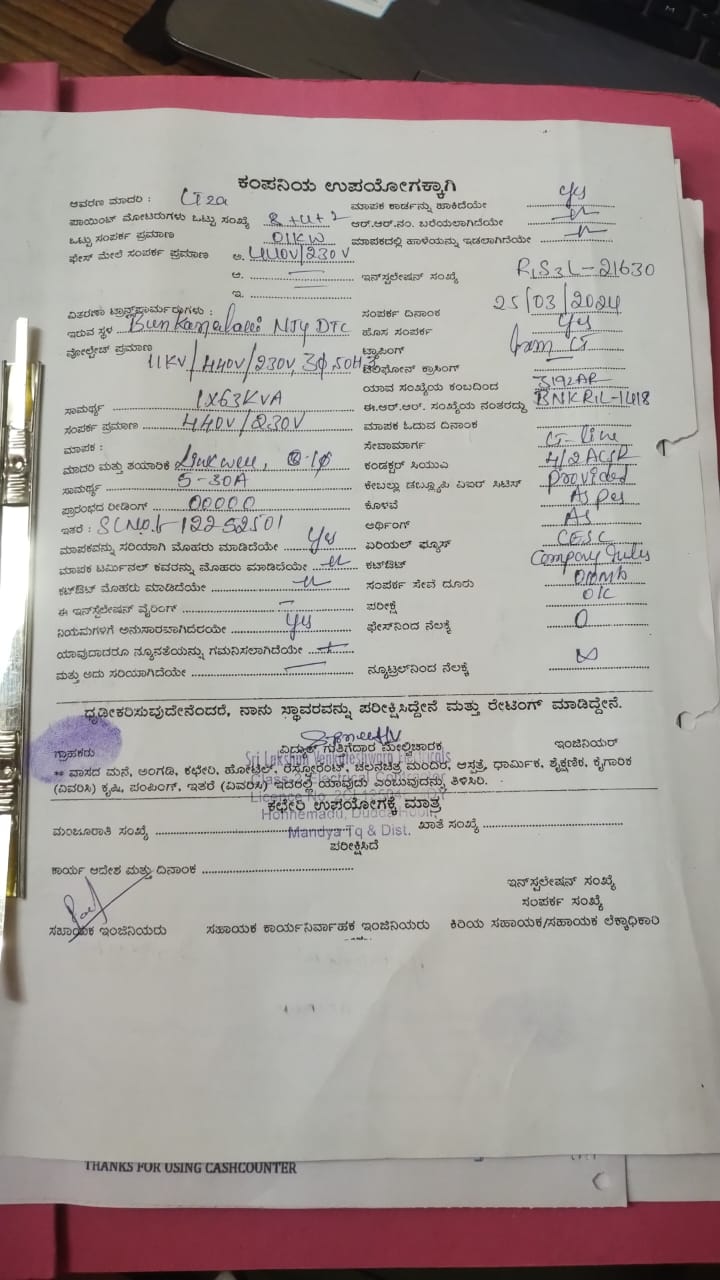 ಕಂಪನಿಯ ಉಪಯೋಗಕ್ಕಾಗಿ
ಆವರಣ ಮಾದರಿ : LT2a ಮಾಪಕ ಕಾರ್ಡನ್ನು ಹಾಕಿದೆಯೇ Yes
ಪಾಯಿಂಟ್ ಮೋಟರುಗಳು ಒಟ್ಟು ಸಂಖ್ಯೆ ಆರ್.ಆರ್.ನಂ. ಬರೆಯಲಾಗಿದೆಯೇ
ಒಟ್ಟು ಸಂಪರ್ಕ ಪ್ರಮಾಣ 01KW ಮಾಪಕದಲ್ಲಿ ಹಾಳೆಯನ್ನು ಇಡಲಾಗಿದೆಯೇ
ಫೇಸ್ ಮೇಲೆ ಸಂಪರ್ಕ ಪ್ರಮಾಣ ಅ. 440V/230V
ಆ. ಇನ್‌ಸ್ಟಲೇಷನ್ ಸಂಖ್ಯೆ R1S3L-21630
ಇ.
ವಿತರಣಾ ಟ್ರಾನ್ಸ್‌ಫಾರ್ಮರುಗಳು : ಸಂಪರ್ಕ ದಿನಾಂಕ 25/03/2024
ಇರುವ ಸ್ಥಳ NJY DTC ಹೊಸ ಸಂಪರ್ಕ Yes
ವೋಲ್ಟೇಜ್ ಪ್ರಮಾಣ 11KV/440V/230V, 3φ, 50HZ ಟ್ಯಾಪಿಂಗ್ from LT
ಟೆಲಿಫೋನ್ ಕ್ರಾಸಿಂಗ್
ಯಾವ ಸಂಖ್ಯೆಯ ಕಂಬದಿಂದ
ಸಾಮರ್ಥ್ಯ 1X63KVA ಈ.ಆರ್.ಆರ್. ಸಂಖ್ಯೆಯ ನಂತರದ್ದು BNKRIL-1418
ಸಂಪರ್ಕ ಪ್ರಮಾಣ 440V/230V ಮಾಪಕ ಓದುವ ದಿನಾಂಕ
ಮಾಪಕ : ಸೇವಾಮಾರ್ಗ LT-line
ಮಾದರಿ ಮತ್ತು ತಯಾರಿಕೆ Linkwell, ಕಂಡಕ್ಟರ್ ಸಿಯುಎ 4/2 ACSR
ಸಾಮರ್ಥ್ಯ 5-30A ಕೇಬಲ್ಲು ಡಬ್ಲ್ಯೂಪಿ ವಿಐರ್ ಸಿಟಿಸ್ Provided
ಪ್ರಾರಂಭದ ರೀಡಿಂಗ್ 00000 ಕೊಳವೆ As per
ಇತರೆ : Sl.No.:- 12252501 ಅರ್ಥಿಂಗ್ As
ಮಾಪಕವನ್ನು ಸರಿಯಾಗಿ ಮೊಹರು ಮಾಡಿದೆಯೇ Yes ಏರಿಯಲ್ ಫ್ಯೂಸ್ CESC
ಮಾಪಕ ಟರ್ಮಿನಲ್ ಕವರನ್ನು ಮೊಹರು ಮಾಡಿದೆಯೇ ಕಟ್‌ಔಟ್ Company rules
ಕಟ್‌ಔಟ್ ಮೊಹರು ಮಾಡಿದೆಯೇ ಸಂಪರ್ಕ ಸೇವೆ ದೂರು
ಈ ಇನ್‌ಸ್ಟಲೇಷನ್ ವೈರಿಂಗ್ ಪರೀಕ್ಷೆ OK
ನಿಯಮಗಳಿಗೆ ಅನುಸಾರವಾಗಿದೆರಯೇ Yes ಫೇಸ್‌ನಿಂದ ನೆಲಕ್ಕೆ 0
ಯಾವುದಾದರೂ ನ್ಯೂನತೆಯನ್ನು ಗಮನಿಸಲಾಗಿದೆಯೇ
ಮತ್ತು ಅದು ಸರಿಯಾಗಿದೆಯೇ ನ್ಯೂಟ್ರಲ್‌ನಿಂದ ನೆಲಕ್ಕೆ
ಧೃಡೀಕರಿಸುವುದೇನೆಂದರೆ, ನಾನು ಸ್ಥಾವರವನ್ನು ಪರೀಕ್ಷಿಸಿದ್ದೇನೆ ಮತ್ತು ರೇಟಿಂಗ್ ಮಾಡಿದ್ದೇನೆ.
ಗ್ರಾಹಕರು ವಿದ್ಯುತ್ ಗುತ್ತಿಗೆದಾರ ಮೇಲ್ವಿಚಾರಕ ಇಂಜಿನಿಯರ್
Sri Lakshmi Venkateshwara Electricals
** ವಾಸದ ಮನೆ, ಅಂಗಡಿ, ಕಛೇರಿ, ಹೋಟೆಲ್, ರೆಸ್ಟೋರೆಂಟ್, ಚಲನಚಿತ್ರ ಮಂದಿರ, ಆಸ್ಪತ್ರೆ, ಧಾರ್ಮಿಕ, ಶೈಕ್ಷಣಿಕ, ಕೈಗಾರಿಕ
(ವಿವರಿಸಿ) ಕೃಷಿ, ಪಂಪಿಂಗ್, ಇತರೆ (ವಿವರಿಸಿ) ಇದರಲ್ಲಿ ಯಾವುದು ಎಂಬುವುದನ್ನು ತಿಳಿಸಿರಿ.
ಕಛೇರಿ ಉಪಯೋಗಕ್ಕೆ ಮಾತ್ರ
Honnemadu, Dudda Hobli,
ಮಂಜೂರಾತಿ ಸಂಖ್ಯೆ ಖಾತೆ ಸಂಖ್ಯೆ
Mandya Tq & Dist.
ಪರೀಕ್ಷಿಸಿದೆ
ಕಾರ್ಯ ಆದೇಶ ಮತ್ತು ದಿನಾಂಕ
ಇನ್‌ಸ್ಟಲೇಷನ್ ಸಂಖ್ಯೆ
ಸಂಪರ್ಕ ಸಂಖ್ಯೆ
ಸಹಾಯಕ ಇಂಜಿನಿಯರು ಸಹಾಯಕ ಕಾರ್ಯನಿರ್ವಾಹಕ ಇಂಜಿನಿಯರು ಕಿರಿಯ ಸಹಾಯಕ/ಸಹಾಯಕ ಲೆಕ್ಕಾಧಿಕಾರಿ
THANKS FOR USING CASHCOUNTER